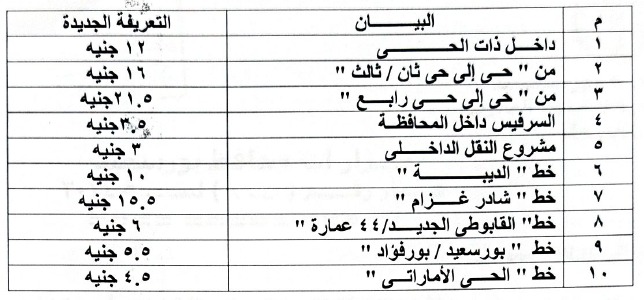 م البيـــــــان التعريفة الجديدة
١ داخــل ذات الحـــــــى ١٢ جنيه
٢ من " حـى إلى حى ثان / ثالث " ١٦ جنيه
٣ من " حى إلى حـــى رابــــع " ٢١.٥ جنيه
٤ السرفيس داخل المحافظة ٣.٥ جنيه
٥ مشروع النقل الداخلـــى ٣ جنيه
٦ خط " الديبـــــــة " ١٠ جنيه
٧ خط " شادر عــزام " ١٥.٥ جنيه
٨ خط" القابوطي الجديـــد/٤٤ عمارة " ٦ جنيه
٩ خط " بورسعيد / بورفؤاد " ٥.٥ جنيه
١٠ خط " الحـــى الأماراتـــي " ٤.٥ جنيه